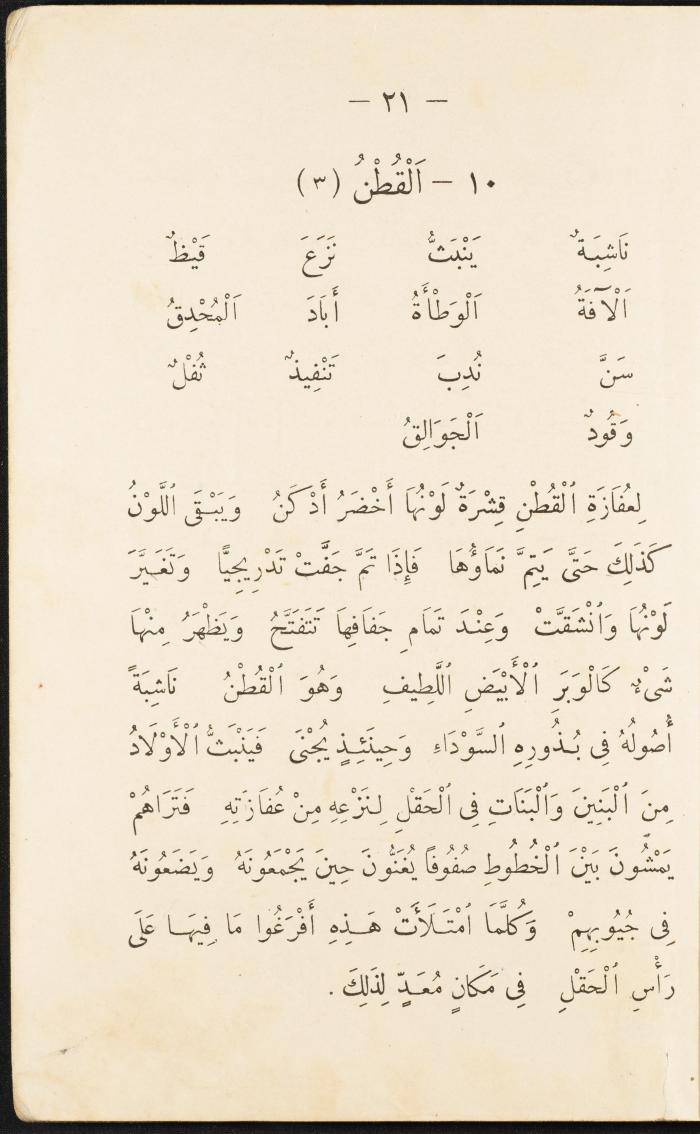 — ٢١ —
١٠ – اَلْقُطْنُ (٣)
نَاشِبَةٌ يَنْبَثُّ نَزَعَ قَيْظٌ
اَلْآفَةُ اَلْوَطْأَةُ أَبَادَ اَلْمُحْدِقُ
سَنَّ نُدِبَ تَنْفِيذٌ ثُفْلٌ
وَقُودٌ اَلْجَوَالِقُ
لِعُفَازَةِ ٱلْقُطْنِ قِشْرَةٌ لَوْنُهَا أَخْضَرُ أَدْكَنُ وَيَبْقَى ٱللَّوْنُ
كَذٰلِكَ حَتَّى يَتِمَّ نَمَاؤُهَا فَإِذَا تَمَّ جَفَّتْ تَدْرِيجِيًّا وَتَغَيَّرَ
لَوْنُهَا وَٱنْشَقَّتْ وَعِنْدَ تَمَامِ جَفَافِهَا تَتَفَتَّحُ وَيَظْهَرُ مِنْهَا
شَىْءٌ كَالْوَبَرِ ٱلْأَبْيَضِ ٱللَّطِيفِ وَهُوَ ٱلْقُطْنُ نَاشِبَةً
أُصُولُهُ فِى بُذُورِهِ ٱلسَّوْدَاءِ وَحِينَئِذٍ يُجْنَى فَيَنْبَثُّ ٱلْأَوْلَادُ
مِنَ ٱلْبَنِينَ وَٱلْبَنَاتِ فِى ٱلْحَقْلِ لِنَزْعِهِ مِنْ عُفَازَتِهِ فَتَرَاهُمْ
يَمْشُونَ بَيْنَ ٱلْخُطُوطِ صُفُوفًا يُغَنُّونَ حِينَ يَجْمَعُونَهُ وَيَضَعُونَهُ
فِى جُيُوبِهِمْ وَكُلَّمَا ٱمْتَلَأَتْ هَذِهِ أَفْرَغُوا مَا فِيهَا عَلَى
رَأْسِ ٱلْحَقْلِ فِى مَكَانٍ مُعَدٍّ لِذَلِكَ .